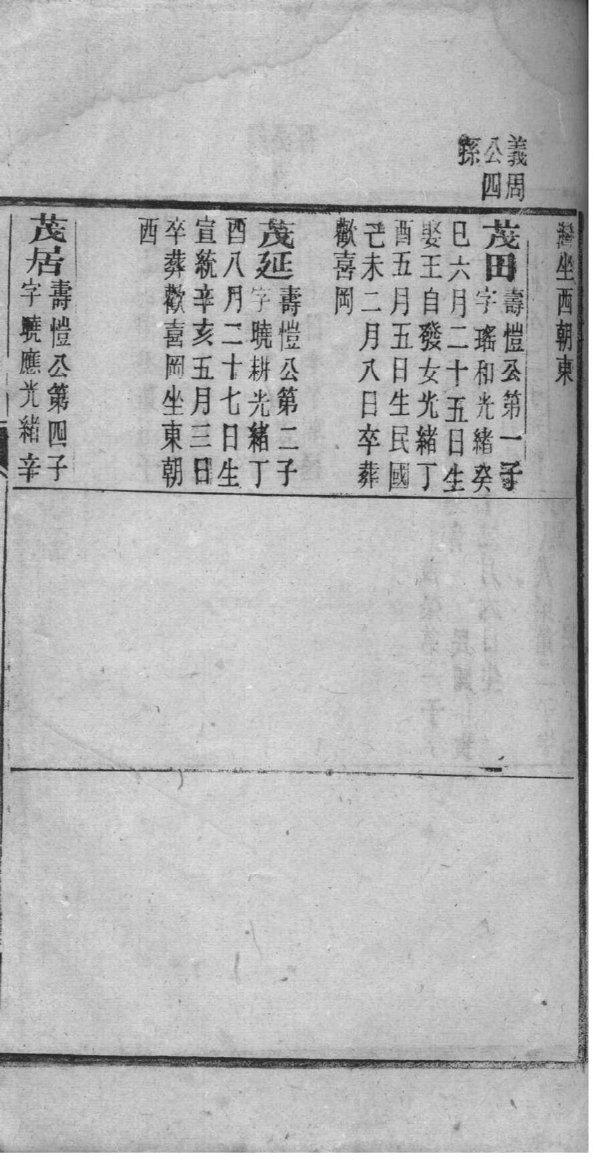 義周
公四
孫
灣坐西朝東
茂田壽愷公第一子
字瑤和光緒癸
巳六月二十五日生
娶王自發女光緒丁
酉五月五日生民國
己未二月八日卒葬
歡喜岡
茂延壽愷公第二子
字曉耕光緒丁
酉八月二十七日生
宣統辛亥五月三日
卒葬歡喜岡坐東朝
西
茂居壽愷公第四子
字曉應光緒辛